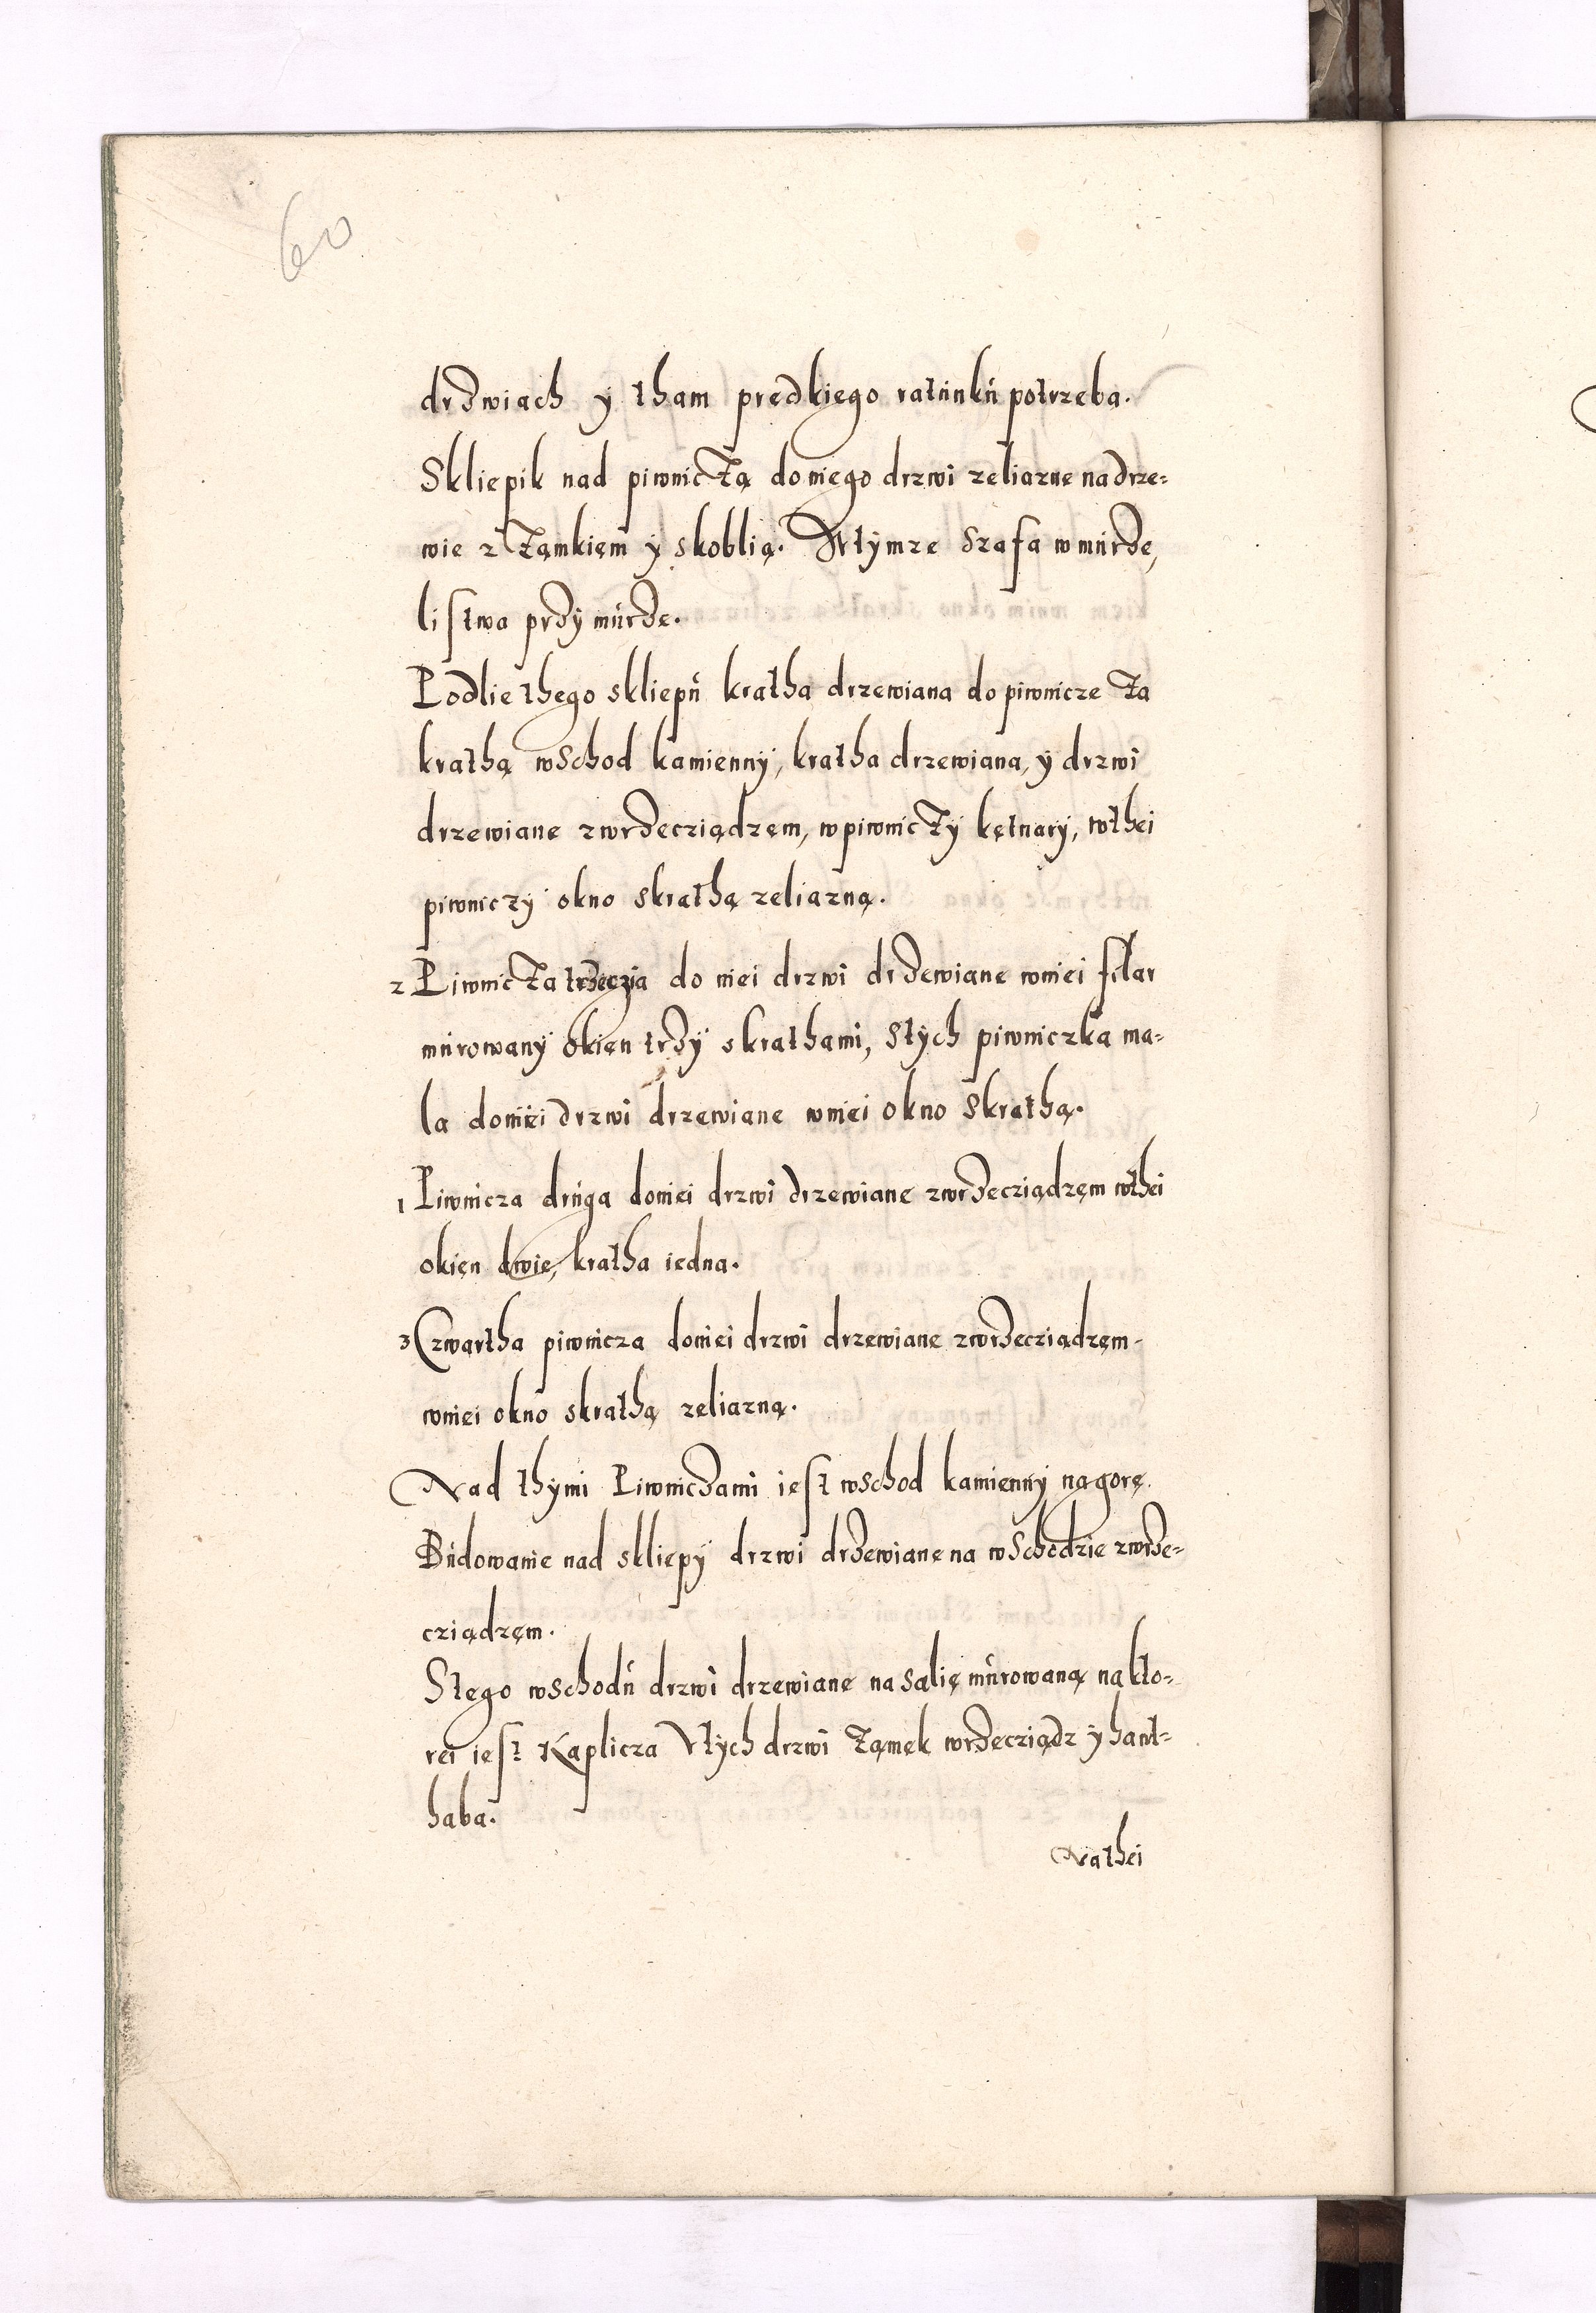 60
drzwiach y tham predkiego ratunku potrzeba.
Skliepik nad piwniczą do niego drzwi zeliazne na drze-
wie z zamkięm y skoblią. W tymze szafa w murze,
listwa przy murze.
Podlie thego skliepu kratha drzewiana do piwnicze za
krathą wschod kamienny, kratha drzewiana, y drzwi
drzewiane z wrzecziądzem, w piwniczy kętnary, w thei
piwniczy okno s krathą zeliazną.
2 Piwnicza trzeczia do niei drzwi drzewiane w niei filar
murowany okien trzy s krathami, S tych piwniczka ma-
la do niei drzwi drzewiane w niei okno s krathą.
1 Piwnicza druga do niei drzwi drzewiane z wrzecziądzem w thei
okien dwie, kratha iedna.
3 Czwartha piwnicza do niei drzwi drzewiane z wrzecziądzem
w niei okno s krathą zeliazną.
Nad thymi Piwniczami iest wschod kamienny na gorę.
Budowanie nad skliepy drzwi drzewiane na wschodzie z wrze-
cziądzem.
S tego wschodu drzwi drzewiane na salię murowaną na kto-
rei iest Kaplicza V tych drzwi zamek wrzecziądz y hant-
haba.
Na thei